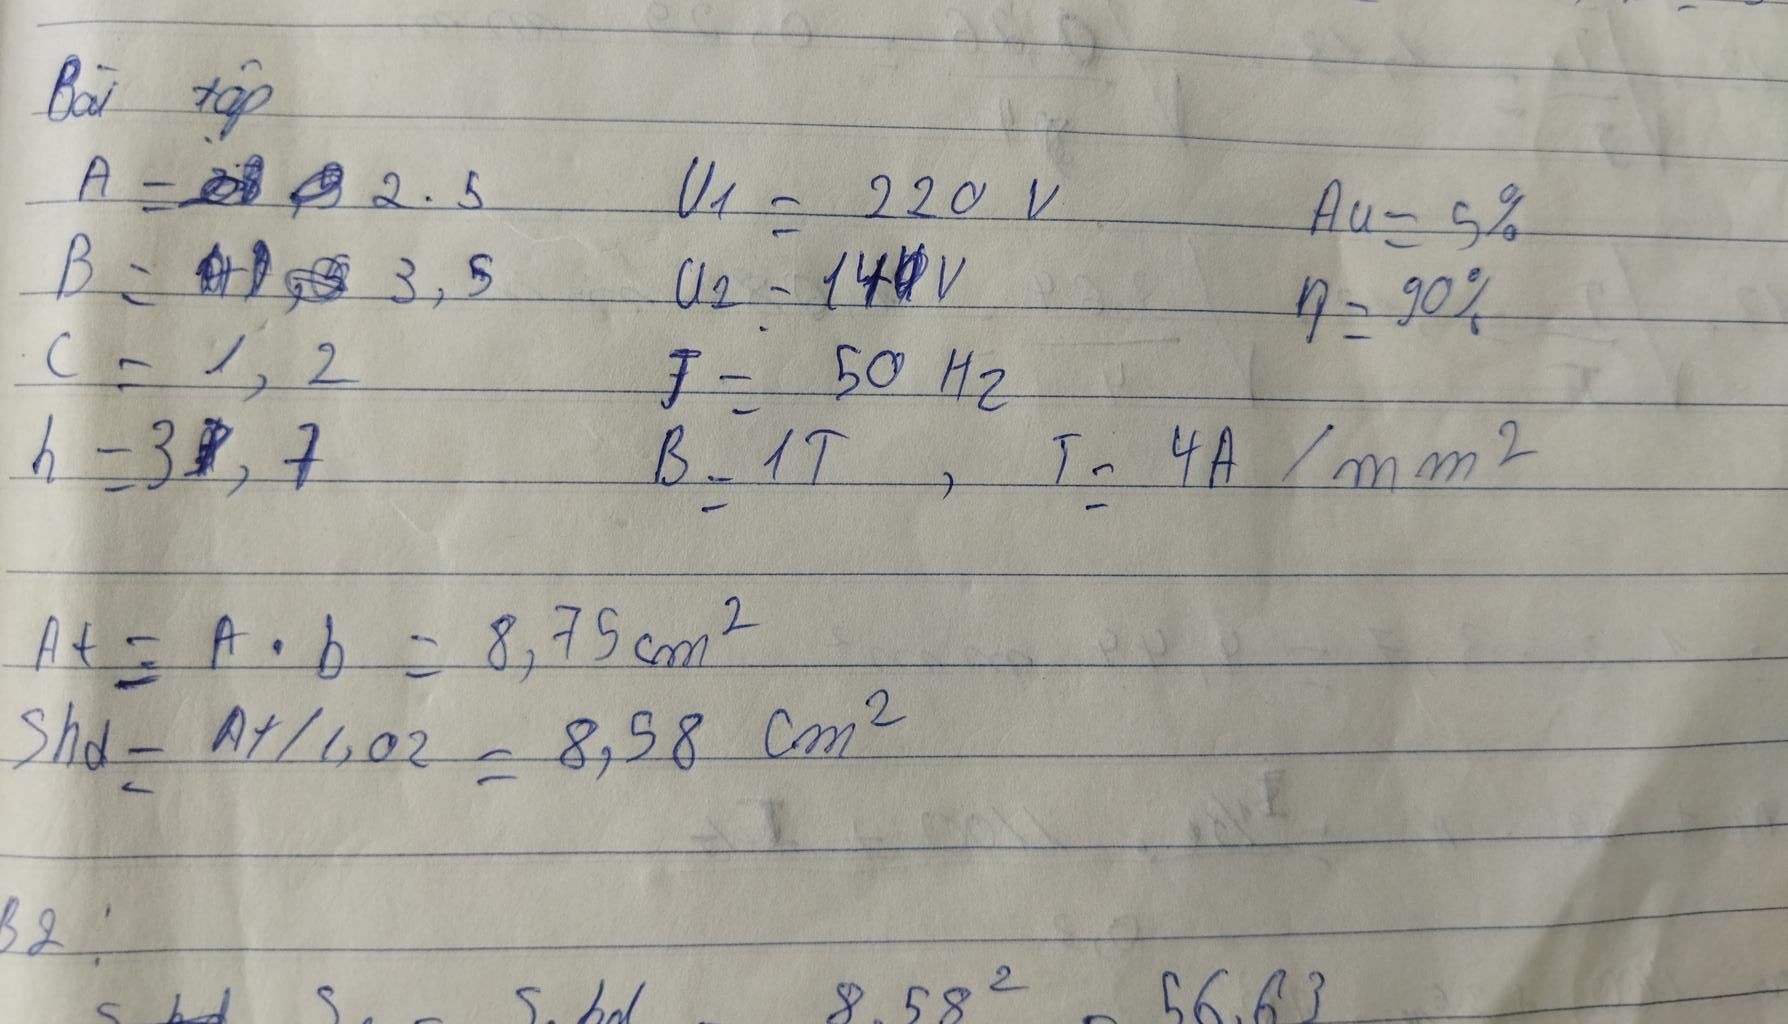 Bài tập
A = 2.5 U1 = 220 V Δu = 5%
B = 3,5 U2 = V η = 90%
C = 1,2 f = 50 Hz
h = 3,7 B = 1T , J = 4A / mm²
At = A . b = 8,75 cm²
Shd = At/1,02 = 8,58 cm²
B2 :
S2 = Shd 8,58² = 56,63